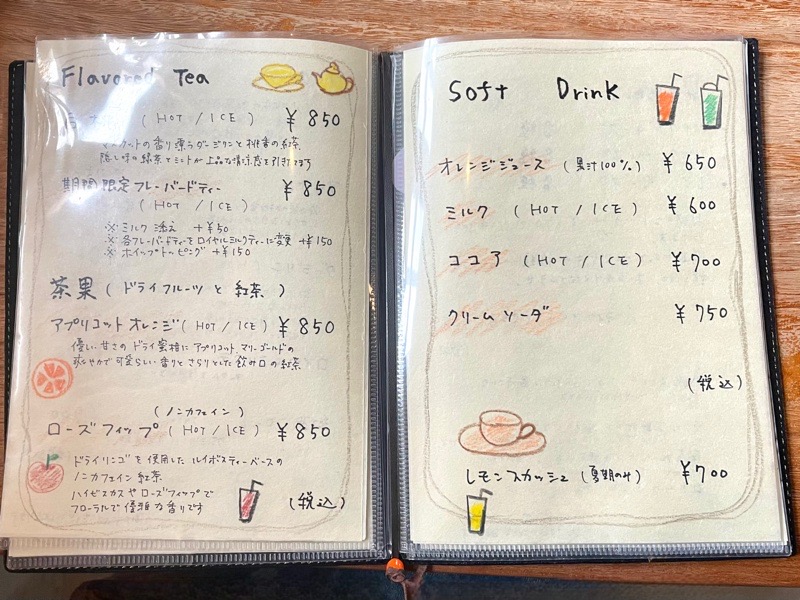 Flavored Tea
(HOT / ICE) ¥850
マスカットの香り漂うダージリンと桃香の紅茶
隠し味の緑茶とミントが上品な清涼感を引き立てます
期間限定フレーバードティー ¥850
(HOT / ICE)
※ミルク添え +¥50
※各フレーバードティーをロイヤルミルクティーに変更 +¥150
※ホイップトッピング +¥150
茶果 (ドライフルーツと紅茶)
アプリコットオレンジ (HOT / ICE) ¥850
優しい甘さのドライ蜜柑にアプリコット、マリーゴールドの
爽やかで可愛らしい香りとさらりとした飲み口の紅茶
(ノンカフェイン)
ローズフィップ (HOT / ICE) ¥850
ドライリンゴを使用したルイボスティーベースの
ノンカフェイン紅茶
ハイビスカスやローズフィップで
フローラルで優雅な香りです
(税込)
Soft Drink
オレンジジュース (果汁100%) ¥650
ミルク (HOT / ICE) ¥600
ココア (HOT / ICE) ¥700
クリームソーダ ¥750
(税込)
レモンスカッシュ (夏期のみ) ¥700